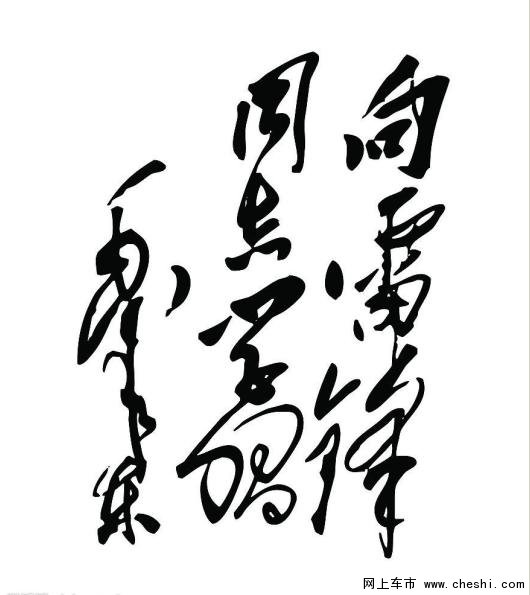 向雷锋
同志学习
毛泽东
网上车市 www.cheshi.com